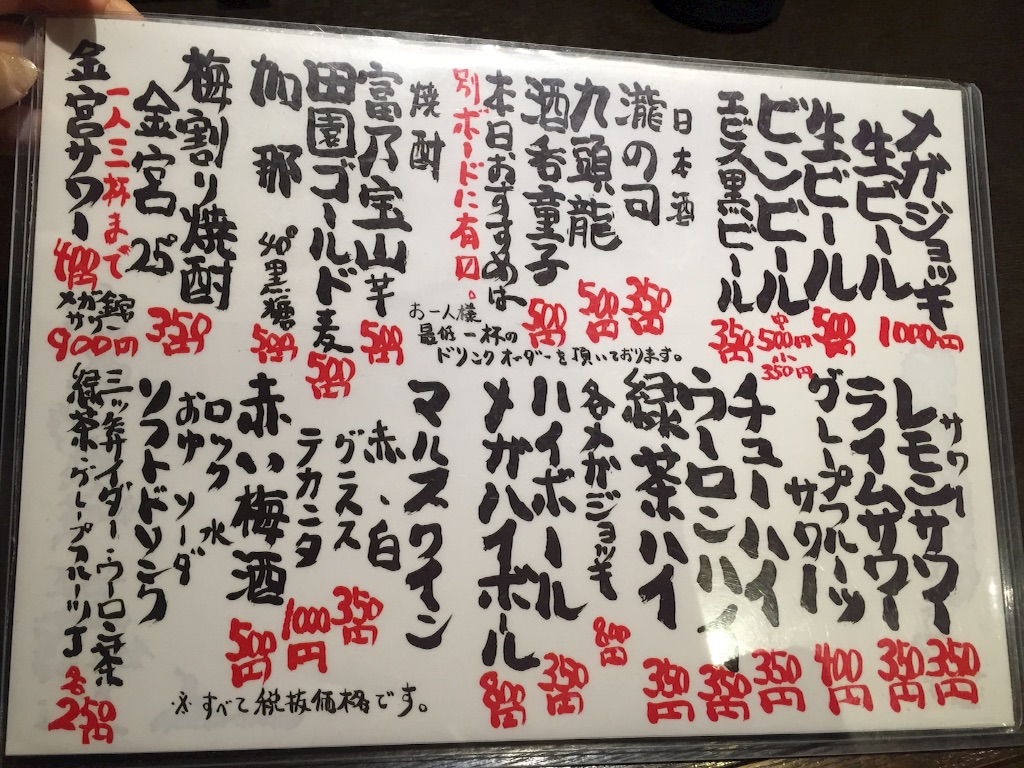 メガジョッキ
生ビール 1000円
生ビール 500円
ビンビール 中500円 小350円
エビス黒ビール 350円
日本酒
瀧の司 350円
九頭龍 500円
酒呑童子 500円
本日おすすめは
別ボードに有口。
焼酎
富乃宝山 芋 500円
田園ゴールド 麦 500円
加那 40°黒糖 500円
梅割り焼酎 350円
金宮 25°
一人三杯まで
金宮サワー 400円
メガサワー 900円
お一人様
最低一杯の
ドリンクオーダーを頂いております。
サワー
レモンサワー 350円
ライムサワー 350円
グレープフルーツ
サワー 400円
チューハイ 350円
ウーロンハイ 350円
緑茶ハイ 350円
各メガジョッキ 800円
ハイボール 350円
メガハイボール 800円
マルスワイン
赤、白
グラス 350円
デカンタ 1000円
赤い梅酒 500円
ロック 水
おゆ ソーダ
ソフトドリンク
三ッ矢サイダー・ウーロン茶
緑茶 グレープフルーツJ 各250円
※すべて税抜価格です。